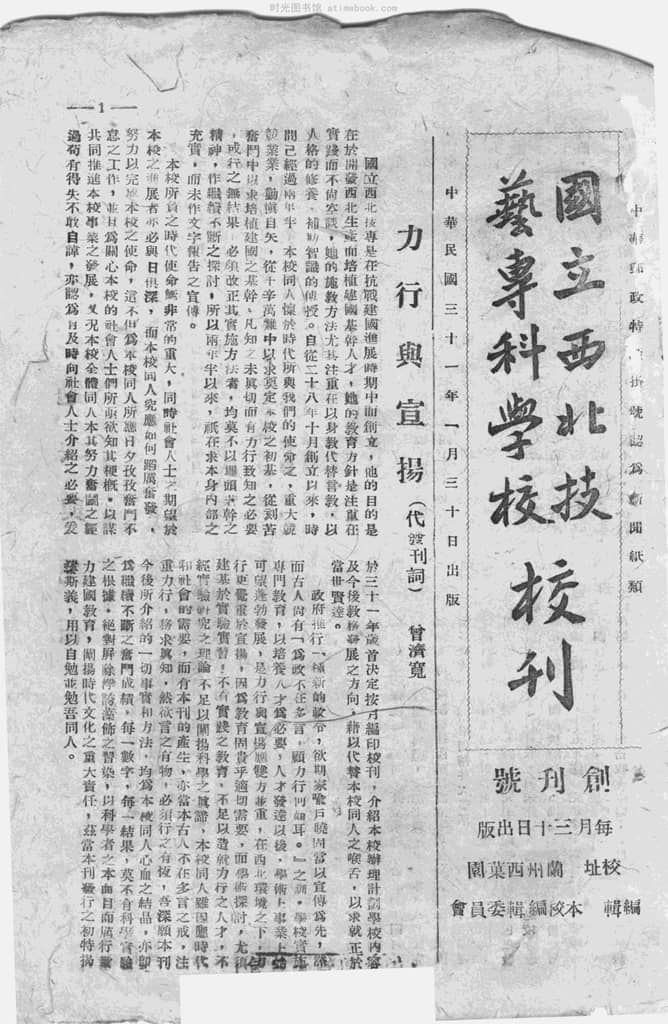 时光图书馆 atimebook.com
國立西北技
藝專科學校
校刊
創刊號
每月三十日出版
校址 蘭州西菓園
編輯 本校編輯委員會
中華民國三十一年一月三十日出版
力行與宣揚（代發刊詞） 曾濟寬
國立西北技專是在抗戰建國進展時期中而創立，她的目的是
在於開發西北生產而培植建國基幹人才，她的教育方針是注重在
實踐而不尚空談，她的施教方法尤其注重在以身教代替言教，以
人格的修養，補助智識的傳授。自從二十八年十月創立以來，時
間已經過兩年半，本校同人懍於時代所與我們的使命之重大，兢
兢業業，勤慎自矢，從千辛萬難中以求奠定本校之初基，從刻苦
奮鬥中以求培植建國之基幹，凡知之未眞切而有力行致知之必要
，或行之無結果，必須改正其實施方法者，均莫不以埋頭苦幹之
精神，作繼續不斷之探討，所以兩年半以來，祇在求本身內部之
充實，而未作文字報告之宣傳。
本校所負之時代使命無非常的重大，同時社會人士之期望於
本校之進展者亦必與日俱深，而本校同人究應如何踔厲奮發，
努力以完成本校之使命，這不但爲本校同人所應日夕孜孜奮鬥不
息之工作，並且爲關心本校的社會人士們所願欲知其梗概。以謀
共同推進本校事業之發展，又況本校全體同人本其努力奮鬥之經
過苟有得失不敢自諱，亦認爲有及時向社會人士介紹之必要，爰
於三十一年歲首决定按月編印校刊，介紹本校辦理計劃學校內容
及今後教務發展之方向，藉以代替本校同人之喉舌，以求就正於
當世賢達。
政府推行一種新的政令，欲期家喻戶曉固當以宣傳爲先，然
而古人尚有「爲政不在多言，顧力行何如耳。」之訓，學校實施
專門教育，以培養人才爲必要，人才發達以後，學術上事業上始
可望蓬勃發展，是力行與宣揚應雙方並重，在西北環境之下，力
行更覺重於宣揚，因爲教育固貴乎適切需要，而學術探討，尤須
建基於實驗實習，不有實踐之教育，不足以造就力行之人才，不
經實驗研究之理論不足以闡揚科學之眞諦，本校同人雖因應時代
和社會的需要，而有本刊的產生，亦當本古人不在多言之戒，注
重力行，務求眞知，然欲言之有物，必須行之有恆，吾深願本刊
今後所介紹的一切事實和方法，均爲本校同人心血之結晶，亦即
爲繼續不斷之奮鬥成績，每一數字，每一結果，莫不有科學實驗
之根據，絕對屏除學誇藻飾之習染，以科學者之本面目而厲行致
力建國教育，闡揚時代文化之重大責任，茲當本刊發行之初特揭
櫫斯義，用以自勉並勉吾同人。
— 1 —